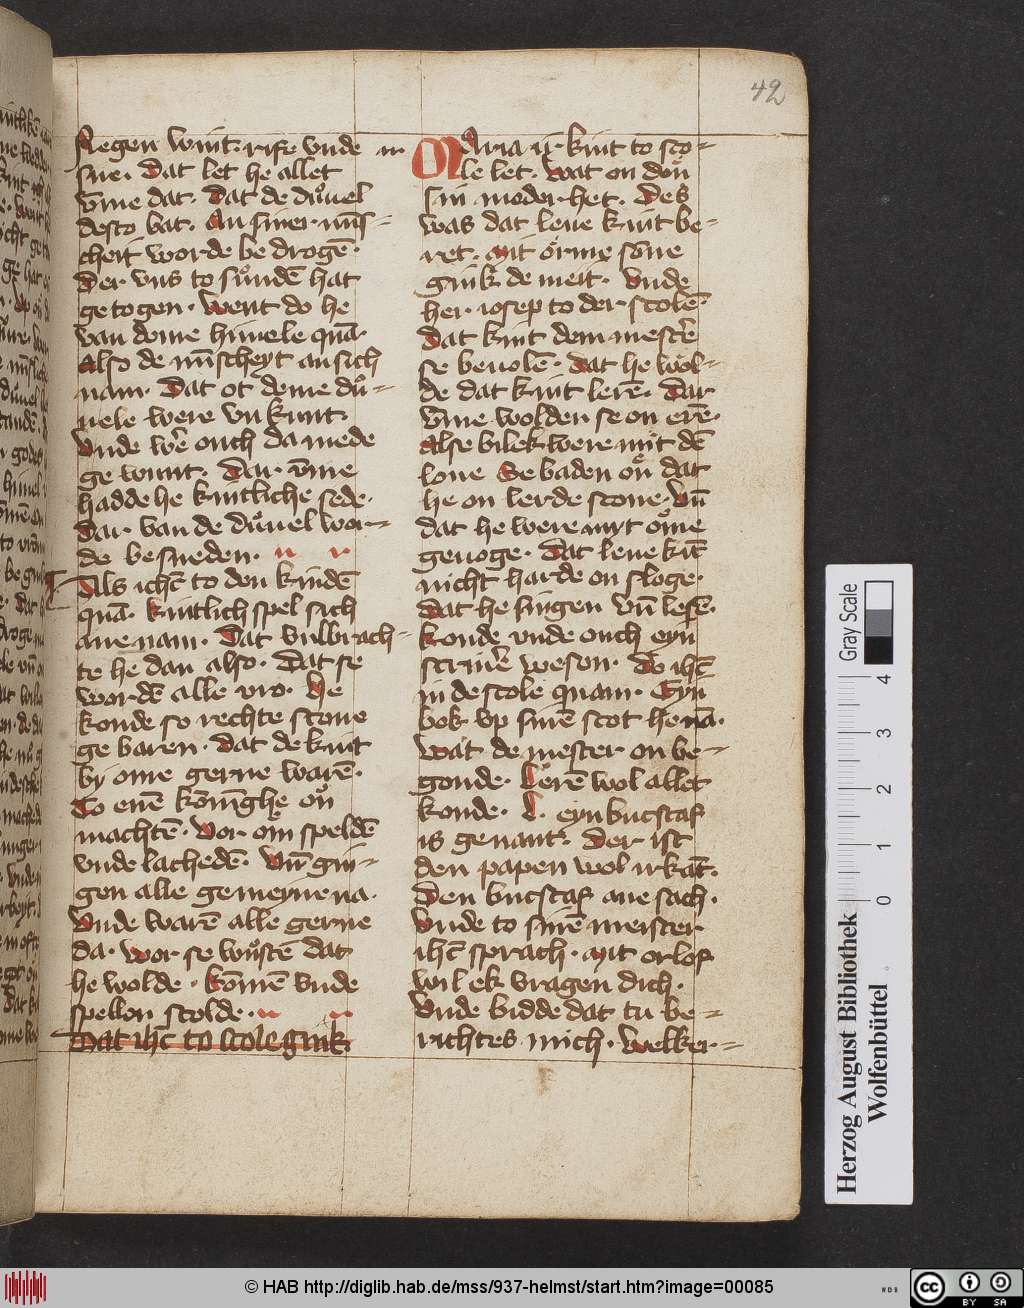 42
Regen wint· rife vnde
sne· Dat let he allet
vm̄e dat· Dat de duͦuel
desto bat· An siner· mīs-
cheit worde be drogē·
Der vns to suͦndē hat
ge togen· Went do he
van deme himele quā·
Also de mīscheyt an sich
nam· Dat ot deme duͦ-
uele were vn kunt·
Vnde w̄e ouch da mede
ge wunt· Dar· vm̄e
hadde he kintliche sede·
dar· van de duͦuel wor-
de besneden·
Als ihc̄ to den kindē
quā· kintlich spel sich
ane nam· Dat vulbrach-
te he dan also· Dat se
wordē alle vro· He
konde so rechte scone
ge baren· Dat de kint
by ome gerne warē·
To enē kōnīghe oͫn
machtē· Vor om speldē
vnde lachedē· Vn̄ gin-
gen alle gemeyne na·
Vnde warē alle gerne
da· Wor se wuͦstē dat
he wolde· komē vnde
spellen scolde·
Dat ihc̄ to scole gink·
Maria ir kint to sco-
le let· Wat on den
sin moder het· Des
was dat leue kint be-
ret· Mit orme sone
gink de meit· Vnde
her· iosep to der scolē·
dat kint dem mest̄e
se beuolē· Dat he wol-
de dat kint lerē· Dar
vm̄e wolden se on erē·
Alse bilek were mit dē
lone Se baden on dat
he on lerde scone· Vn̄
dat he were myt ome
genoge· Dat leue kīt
nicht harde on sloge·
Dat he singen vn̄ lesē·
konde vnde ouch eyn
scriu̅e weson· Do ihc̄
in de scole quam· Eyn
bok vp sinē scot he nā·
Wat de mester on be-
gonde· Lerē wol allet
konde· L· eyn bucstaf
is genant· Der ist
den papen wol irkāt·
Den bucstaf ane sach·
Vnde to sinē meister
ihc̄ sprach· Mit orlof
wil ek vragen dich·
Vnde bidde dat tu be-
richtes mich· Welker-
Herzog August Bibliothek
Wolfenbüttel
Gray Scale
0 1 2 3 4
© HAB http://diglib.hab.de/mss/937-helmst/start.htm?image=00085
WDB
cc BY SA